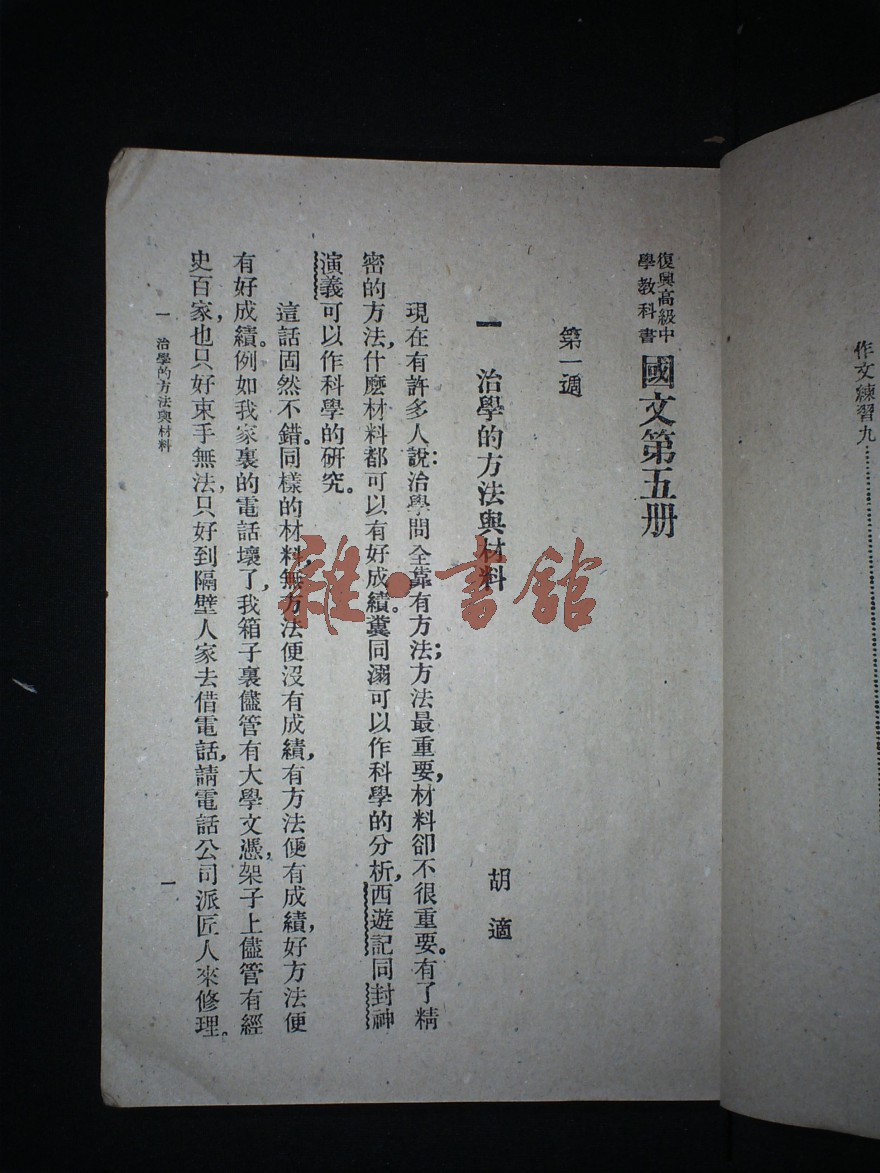 作文練習九
復興高級中
學教科書
國文第五册
第一週
一 治學的方法與材料
胡適
現在有許多人說:治學問全靠有方法;方法最重要,材料卻不很重要。有了精
密的方法,什麽材料都可以有好成績。糞同溺可以作科學的分析,西遊記同封神
演義可以作科學的研究。
這話固然不錯。同樣的材料,無方法便沒有成績,有方法便有成績,好方法便
有好成績。例如我家裏的電話壞了,我箱子裏儘管有大學文憑,架子上儘管有經
史百家,也只好束手無法,只好到隔壁人家去借電話,請電話公司派匠人來修理。
一 治學的方法與材料
一
雜·書館